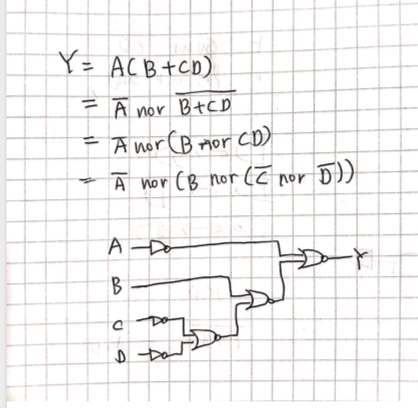 Y = A(B+CD)
= A̅ nor B̅+̅C̅D̅
= A̅ nor (B nor CD)
= A̅ nor (B nor (C̅ nor D̅))
A
B
Y
C
D